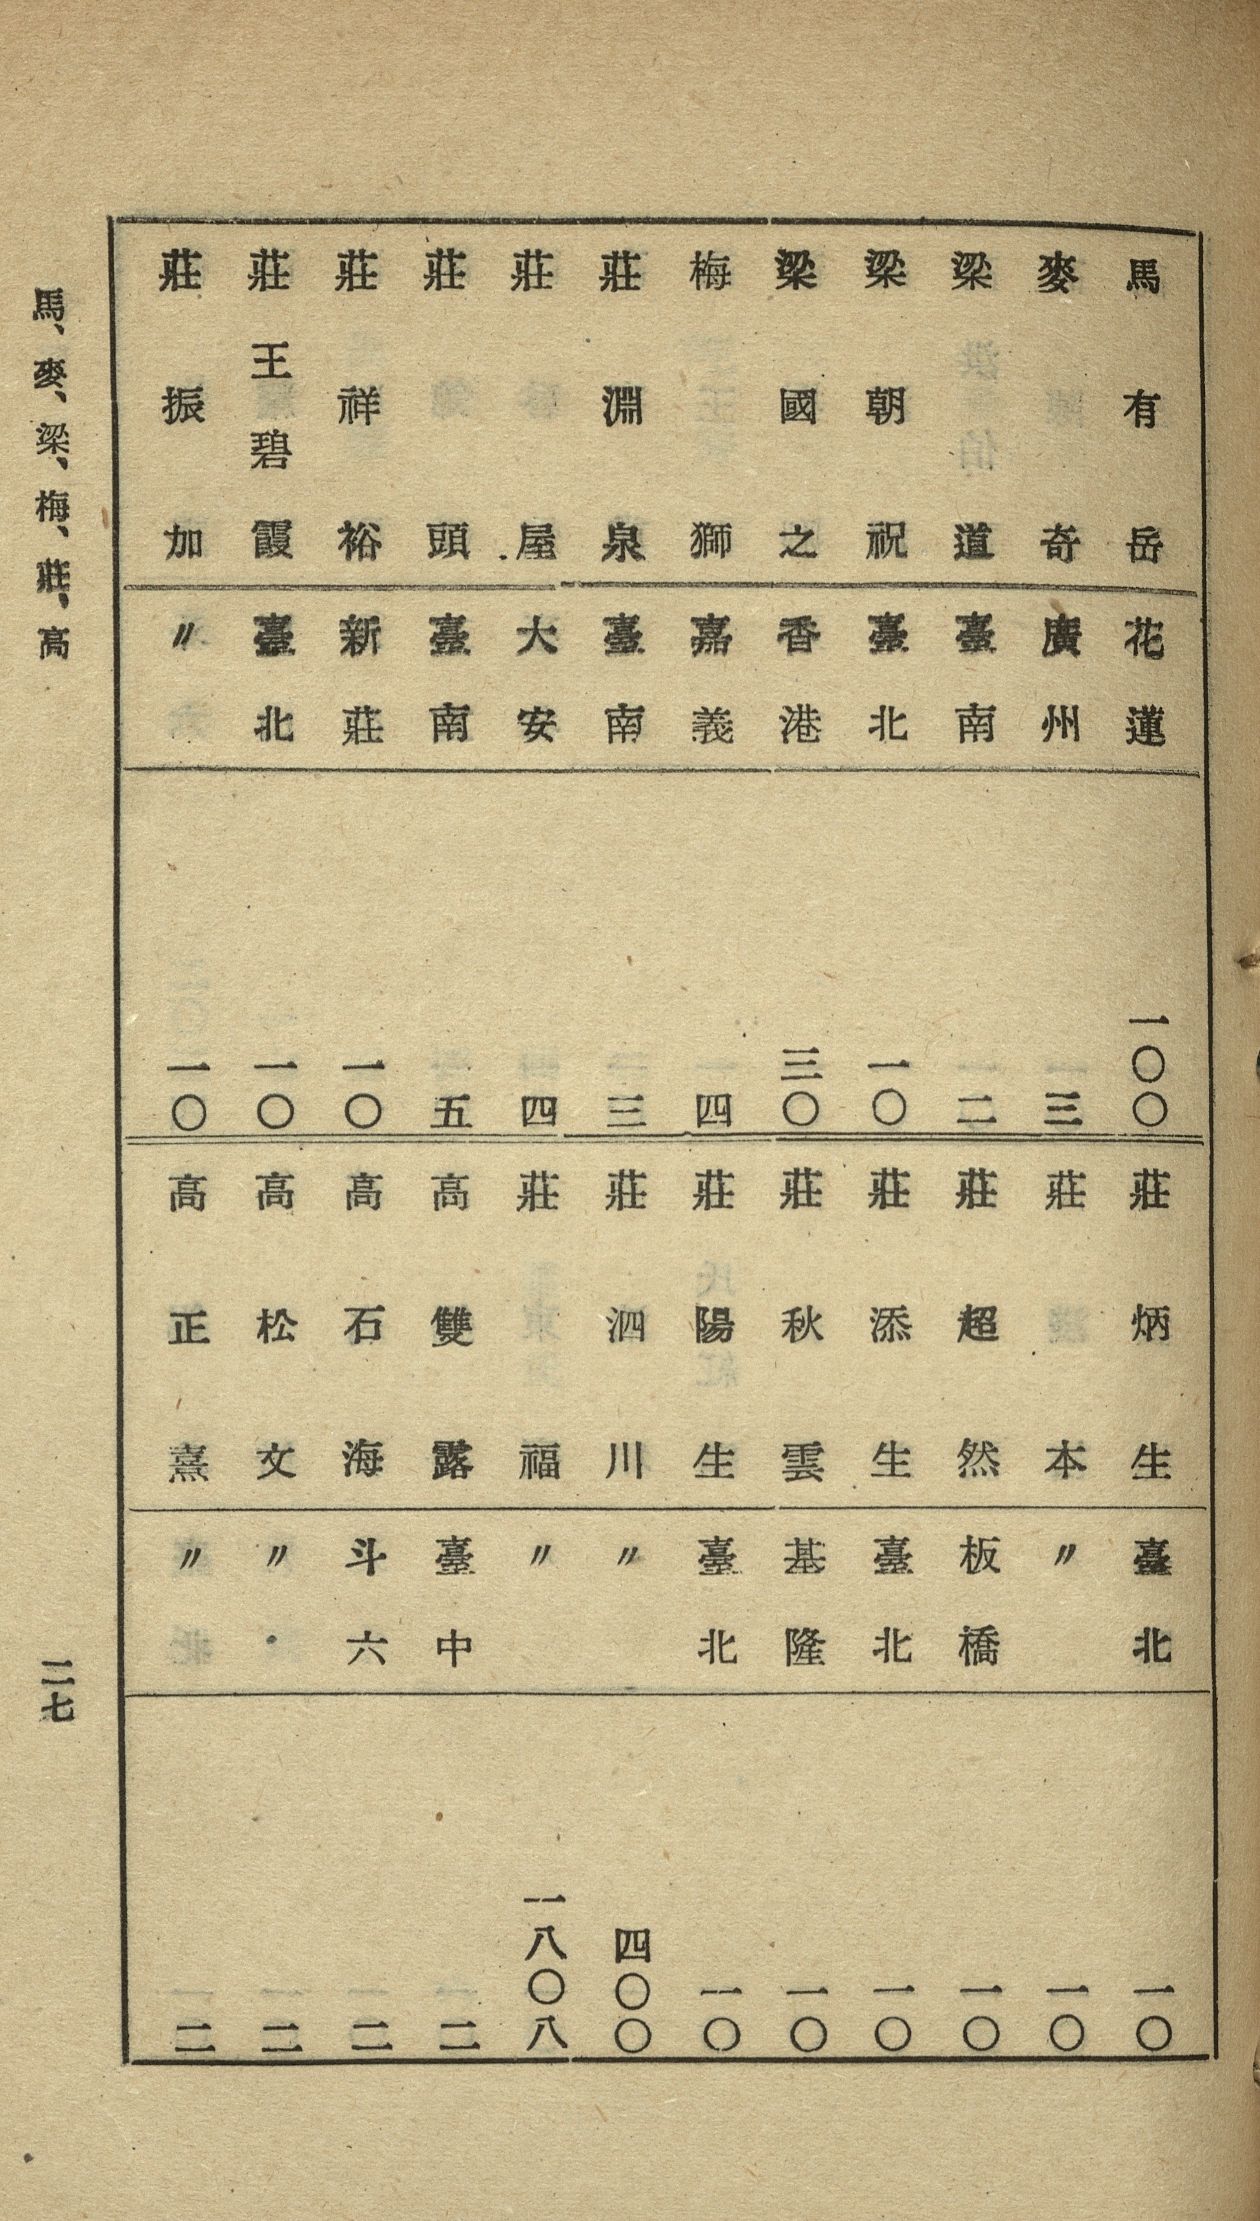 馬有岳 花蓮 一〇〇
麥奇 廣州 三
梁道 臺南 二
梁朝祝 臺北 一〇
梁國之 香港 三〇
梅獅 嘉義 四
莊淵泉 臺南 三
莊屋 大安 四
莊頭 臺南 五
莊祥裕 新莊 一〇
莊王碧霞 臺北 一〇
莊振加 〃 一〇
莊炳生 臺北 一〇
莊本 〃 一〇
莊超然 板橋 一〇
莊添生 臺北 一〇
莊秋雲 基隆 一〇
莊陽生 臺北 一〇
莊泗川 〃 四〇〇
莊福 〃 一八〇八
高雙露 臺中 二
高石海 斗六 二
高松文 〃 二
高正熹 〃 二
馬、麥、梁、梅、莊、高
二七